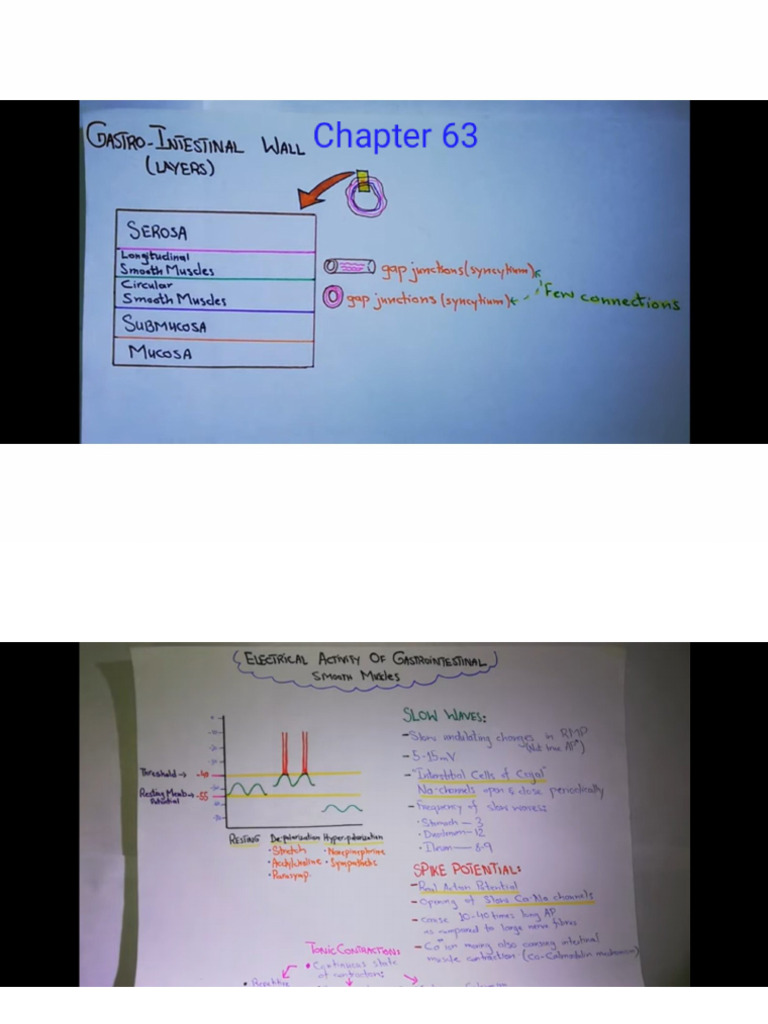 GASTRO-INTESTINAL WALL Chapter 63
(LAYERS)
SEROSA
Longitudinal
Smooth Muscles
gap junctions (syncytium)
Circular
Smooth Muscles
gap junctions (syncytium)
Few connections
SUBMUCOSA
MUCOSA
ELECTRICAL ACTIVITY OF GASTROINTESTINAL
SMOOTH MUSCLES
Threshold → -40
Resting Memb → -55
Potential
RESTING Depolarization Hyperpolarization
• Stretch • Norepinephrine
• Acetylcholine • Sympathetic
• Parasymp.
SLOW WAVES:
- Slow undulating changes in RMP
(Not true AP)
- 5-15mV
- "Interstitial Cells of Cajal"
Na-channels open & close periodically
- Frequency of slow waves:
• Stomach — 3
• Duodenum — 12
• Ileum — 8-9
SPIKE POTENTIAL:
- Real Action Potential
- Opening of Slow Ca-Na channels
- cause 10-40 times long AP
as compared to large nerve fibres
- Ca++ ion moving also causing intestinal
muscle contraction (Ca-Calmodulin mechanism)
TONIC CONTRACTIONS
• Continuous state
of contractions
• Repetitive